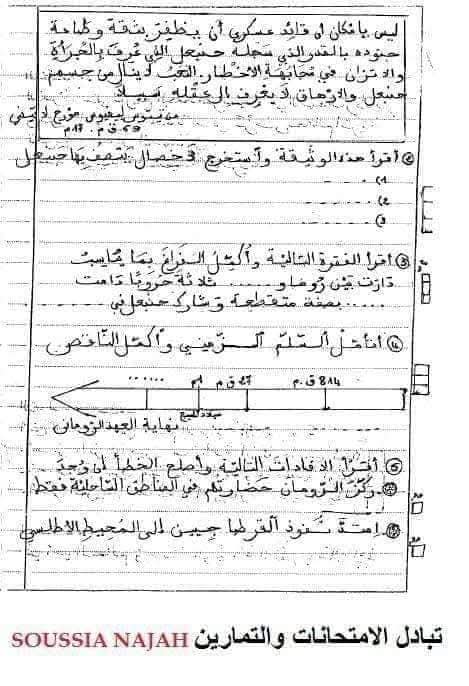 ليس بإمكان أي قائد عسكري أن يظفر بثقة وطاعة
جنوده بالقدر الذي سجله حنبعل الذي عُرف بالجرأة
والاتزان في مجابهة الأخطار. التعب لا ينال من جسم
حنبعل والإرهاق لا يعرف إلى عقله سبيلا
تيتوس ليفيوس مؤرخ لاتيني
59 ق.م. 17 م
② أقرأ هذه الوثيقة وأستخرج 3 خصال يتصف بها حنبعل
1)
2)
3)
③ أقرأ الفقرة التالية وأكمل الفراغ بما يناسب
دارت بين روما و ....... ثلاثة حروبا دامت
....... بصفة متقطعة وشارك حنبعل في .......
④ أتأمل السلم الزمني وأكمل الناقص
814 ق.م 27 ق.م م1 ......
ميلاد المسيح
نهاية العهد الروماني
⑤ أقرأ الإفادات التالية وأصلح الخطأ إن وجد
ركّز الرومان حضارتهم في المناطق الساحلية فقط
امتد نفوذ القرطاجيين إلى المحيط الأطلسي
تبادل الامتحانات والتمارين SOUSSIA NAJAH